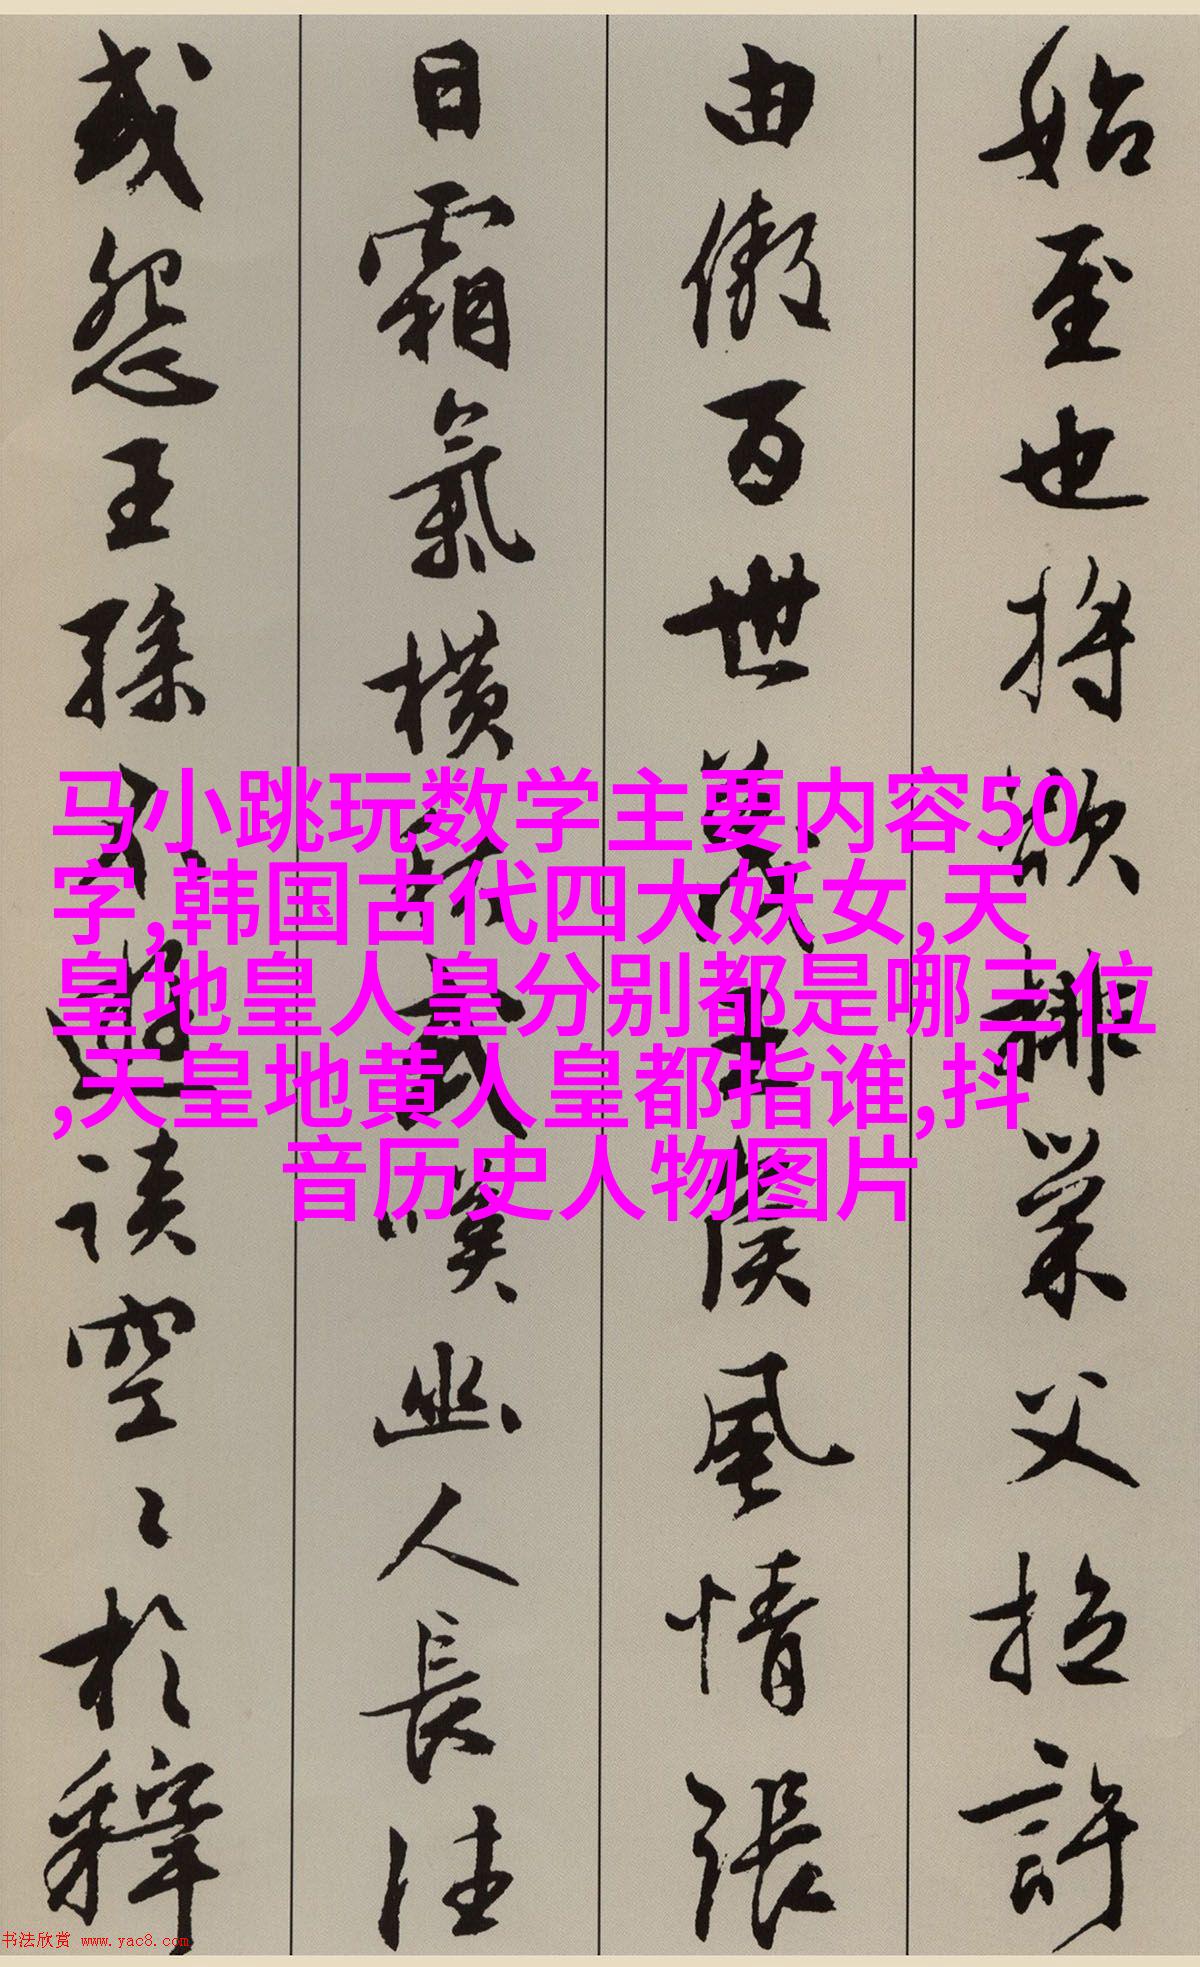 始至也將欲排巢父拉許
由傲百世蔑王侯風情張
日霜氣橫秋或嘆幽人長往
或怨王孫不遊談空〻於釋
马小跳玩数学主要内容50
字,韩国古代四大妖女,天
皇地皇人皇分别都是哪三位
,天皇地黄人皇都指谁,抖
音历史人物图片
书法欣赏 www.yac8.com